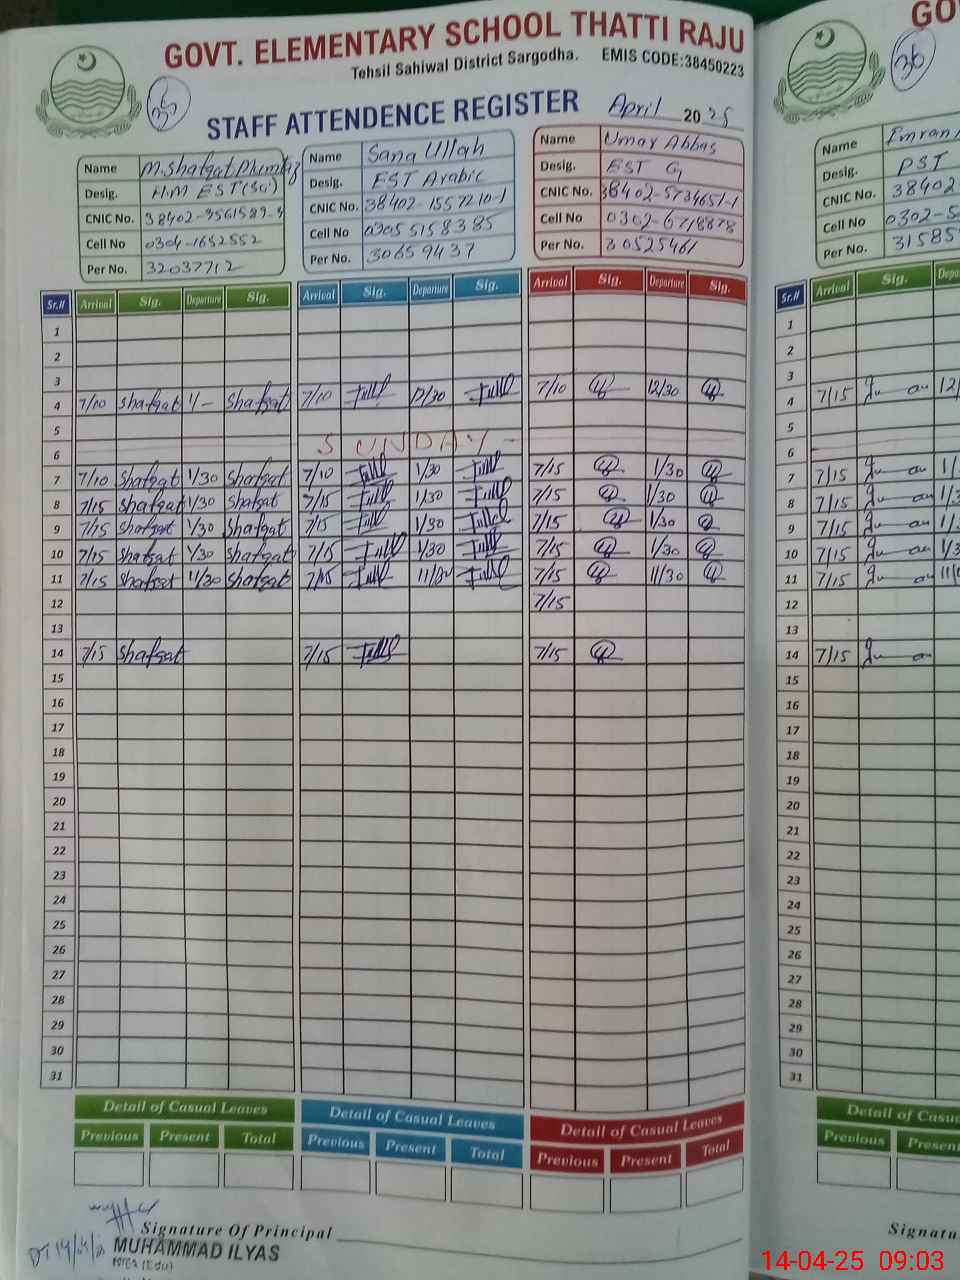 GOVT. ELEMENTARY SCHOOL THATTI RAJU
Tehsil Sahiwal District Sargodha. EMIS CODE:38450223
35
STAFF ATTENDENCE REGISTER April 2025
Name M.Shafqat Mumtaz
Desig. H.M EST(Sci)
CNIC No. 38402-9561589-
Cell No 0304-1652552
Per No. 32037712
Name Sana Ullah
Desig. EST Arabic
CNIC No. 38402-1557210-1
Cell No 03055158385
Per No. 30659437
Name Umar Abbas
Desig. EST G
CNIC No. 38402-5734651-1
Cell No 0302-6718878
Per No. 30525461
Sr.# Arrival Sig. Departure Sig. Arrival Sig. Departure Sig. Arrival Sig. Departure Sig.
1
2
3
4 7/10 Shafqat 1/- Shafqat 7/10 12/30 7/10 12/30
5
6 SUNDAY
7 7/10 Shafqat 1/30 Shafqat 7/10 1/30 7/15 1/30
8 7/15 Shafqat 1/30 Shafqat 7/15 1/30 7/15 1/30
9 7/15 Shafqat 1/30 Shafqat 7/15 1/30 7/15 1/30
10 7/15 Shafqat 1/30 Shafqat 7/15 1/30 7/15 1/30
11 7/15 Shafqat 11/30 Shafqat 7/15 7/15 11/30
12 7/15
13
14 7/15 Shafqat 7/15 7/15
15
16
17
18
19
20
21
22
23
24
25
26
27
28
29
30
31
Detail of Casual Leaves Detail of Casual Leaves Detail of Casual Leaves
Previous Present Total Previous Present Total Previous Present Total
Signature Of Principal
MUHAMMAD ILYAS
GO
36
Name Imran
Desig. PST
CNIC No. 38402
Cell No 0302-5
Per No. 31585
Sr.# Arrival Sig.
1
2
3
4 7/15 12/
5
6
7 7/15 1/
8 7/15 1/3
9 7/15 1/3
10 7/15 1/3
11 7/15
12
13
14 7/15
15
16
17
18
19
20
21
22
23
24
25
26
27
28
29
30
31
Detail of Casu
Previous Presen
Signatu
14-04-25 09:03